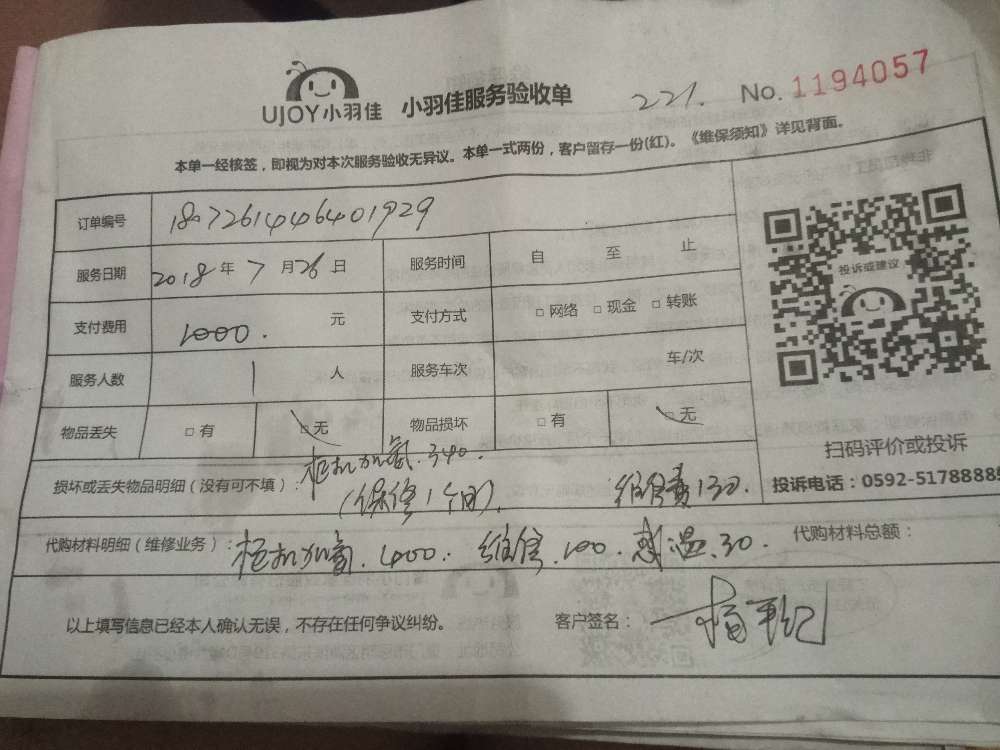 UJOY小羽佳 小羽佳服务验收单 221. No. 1194057
本单一经核签，即视为对本次服务验收无异议。本单一式两份，客户留存一份(红)。《维保须知》详见背面。
订单编号 18072614446401929
服务日期 2018年7月26日 服务时间 自 至 止
支付费用 1000. 元 支付方式 □网络 □现金 □转账
服务人数 1 人 服务车次 车/次
物品丢失 □有 □无 物品损坏 □有 □无
投诉或建议
扫码评价或投诉
投诉电话：0592-5178888
柜机加氟.340.
损坏或丢失物品明细（没有可不填）： (保修1个月). 维修费130.
代购材料明细（维修业务）： 柜机加氟.1000. 维修.100.感温.30. 代购材料总额：
以上填写信息已经本人确认无误，不存在任何争议纠纷。 客户签名：